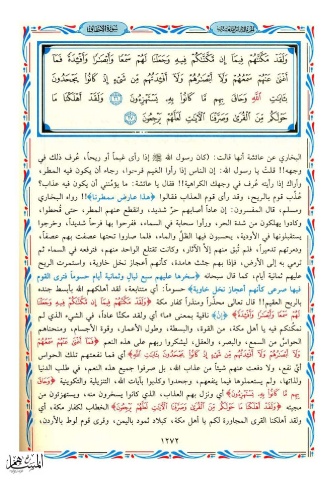 سورة الأحقاف
وَلَقَدْ مَكَّنَّاهُمْ فِيمَا إِن مَّكَّنَّاكُمْ فِيهِ وَجَعَلْنَا لَهُمْ سَمْعًا وَأَبْصَارًا وَأَفْئِدَةً فَمَا
أَغْنَى عَنْهُمْ سَمْعُهُمْ وَلَا أَبْصَارُهُمْ وَلَا أَفْئِدَتُهُم مِّن شَيْءٍ إِذْ كَانُوا يَجْحَدُونَ
بِآيَاتِ اللَّهِ وَحَاقَ بِهِم مَّا كَانُوا بِهِ يَسْتَهْزِئُونَ وَلَقَدْ أَهْلَكْنَا مَا
حَوْلَكُم مِّنَ الْقُرَى وَصَرَّفْنَا الْآيَاتِ لَعَلَّهُمْ يَرْجِعُونَ
البخاري عن عائشة أنها قالت: (كان رسول الله ﷺ إذا رأى غيماً أو ريحاً، عُرف ذلك في
وجهه!! قالت يا رسول الله: إن الناس إذا رأوا الغيم فرحوا، رجاء أن يكون فيه المطر،
وأراك إذا رأيته عُرف في وجهك الكراهية!! فقال يا عائشة: ما يؤمّنني أن يكون فيه عذاب؟
عُذّب قوم بالريح، وقد رأى قوم العذاب فقالوا: ﴿هذا عارض ممطرنا﴾!! رواه البخاري
ومسلم، قال المفسرون: إن عاداً أصابهم حرٌّ شديد، وانقطع عنهم المطر، حتى قُحطوا،
وكادوا يهلكون من شدة الحر، ورأوا سحابة في السماء، ففرحوا بها فرحاً شديداً، وخرجوا
يستقبلونها في الأودية، يحسبون فيها الظلَّ والماء، فلما صاروا تحتها عصفت بهم عصفاً،
ودمرتهم تدميراً، فلم تُبق منهم إلاَّ الآثار، وكانت تقتلع الواحد منهم، فترفعه في السماء ثم
ترمي به إلى الأرض، فإذا بهم جثث هامدة، كأنهم أعجاز نخل خاوية، واستمرت الريح
عليهم ثمانية أيام، كما قال سبحانه ﴿سخرها عليهم سبع ليال وثمانية أيام حسوماً فترى القوم
فيها صرعى كأنهم أعجاز نخل خاوية﴾ حسوماً: أي متتابعة، لقد أهلكهم الله بأبسط جنده
بالريح العقيم!! قال تعالى محذّراً ومنذراً كفار مكة ﴿وَلَقَدْ مَكَّنَّاهُمْ فِيمَا إِن مَّكَّنَّاكُمْ فِيهِ وَجَعَلْنَا
لَهُمْ سَمْعًا وَأَبْصَارًا وَأَفْئِدَةً﴾ ﴿إِن﴾ نافية بمعنى «ما» أي ولقد مكنّا عاداً، في الشيء الذي لم
نمكّنكم فيه يا أهل مكة، من القوة، والبسطة، وطول الأعمار، وقوة الأجسام، ومنحناهم
الحواسَّ من السمع، والبصر، والعقل، ليشكروا ربهم على هذه النعم ﴿فَمَا أَغْنَى عَنْهُمْ سَمْعُهُمْ
وَلَا أَبْصَارُهُمْ وَلَا أَفْئِدَتُهُم مِّن شَيْءٍ إِذْ كَانُوا يَجْحَدُونَ بِآيَاتِ اللَّهِ﴾ أي فما نفعتهم تلك الحواس
أيَّ نفع، ولا دفعت عنهم شيئاً من عذاب الله، بل صرفوا جميع هذه النعم، في طلب الدنيا
ولذاتها، ولم يستعملوها فيما ينفعهم، وجحدوا وكذبوا بآيات الله، التنزيلية والتكوينية ﴿وَحَاقَ
بِهِم مَّا كَانُوا بِهِ يَسْتَهْزِئُونَ﴾ أي ونزل بهم العذاب، الذي كانوا يسخرون منه، ويستهزئون من
مجيئه ﴿وَلَقَدْ أَهْلَكْنَا مَا حَوْلَكُم مِّنَ الْقُرَى وَصَرَّفْنَا الْآيَاتِ لَعَلَّهُمْ يَرْجِعُونَ﴾ الخطاب لكفار مكة، أي
ولقد أهلكنا القرى المجاورة لكم يا أهل مكة، كبلاد ثمود باليمن، وقرى قوم لوط بالأردن،
١٢٧٢